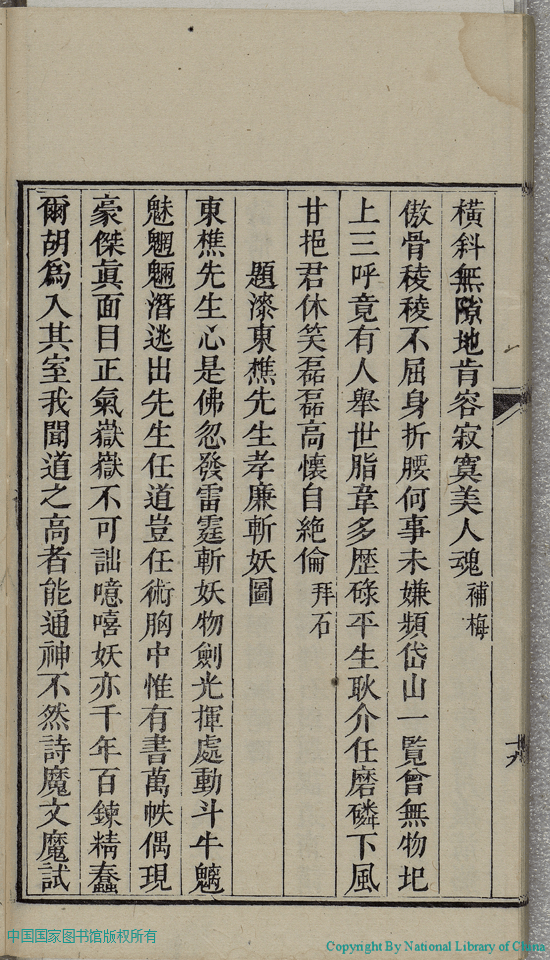 橫斜無隙地肯容寂寞美人魂補梅
傲骨稜稜不屈身折腰何事未嫌頻岱山一覽曾無物圯
上三呼竟有人舉世脂韋多歷碌平生耿介任磨磷下風
甘挹君休笑磊磊高懷自絶倫拜石
題漆東樵先生孝廉斬妖圖
東樵先生心是佛忽發雷霆斬妖物劍光揮處動斗牛魑
魅魍魎潛逃出先生任道豈任術胸中惟有書萬帙偶現
豪傑眞面目正氣嶽嶽不可詘噫嘻妖亦千年百鍊精蠢
爾胡為入其室我聞道之高者能通神不然詩魔文魔試
十六
中国国家图书馆版权所有
Copyright By National Library of China